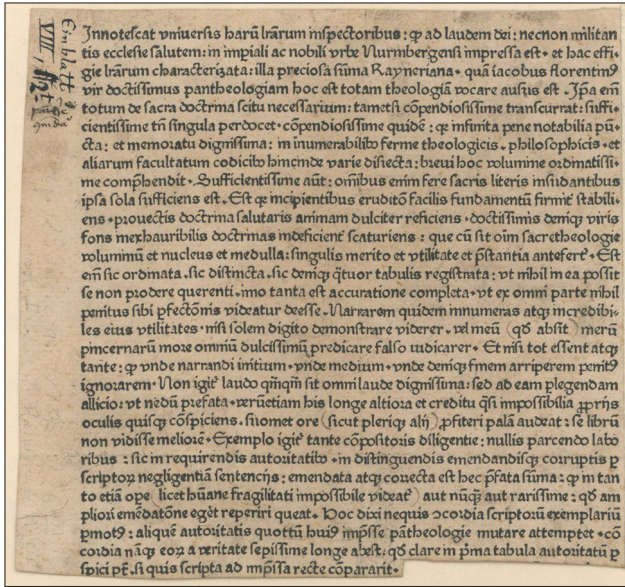 Innotescat vniuersis harū lrārum inspectoribus: ꝙ ad laudem dei: necnon militan
tis ecclesie salutem: in impiali ac nobili vrbe Nurmbergensi impressa est. et hac effi-
gie lrārum characterizata: illa preciosa sūma Rayneriana. quā iacobus florentinꝰ
vir doctissimus pantheologiam hoc est totam theologiā vocare ausus est. Ipa em̄
totum de sacra doctrina scitu necessarium: tametsi cōpendiosissime transcurrat: suffi-
cientissime tn̄ singula perdocet. cōpendiosissime quidē: qꝫ infinita pene notabilia pū-
cta: et memoratu dignissima: in inumerabilibꝰ ferme theologicis. philosophicis. et
aliarum facultatum codicibꝰ hincinde varie disiecta: breui hoc volumine ordinatissi-
me comp̄hendit. Sufficientissime aūt: omībus enim fere sacris literis insudantibus
ipsa sola sufficiens est. Est qꝫ incipientibus eruditōn facilis fundamentū firmit̄ stabili-
ens. prouectis doctrina salutaris animam dulciter reficiens. doctissimis deniqꝫ viris
fons inexhauribilis doctrinas indeficient̄ scaturiens: que cū sit oīm sacretheologie
voluminū et nucleus et medulla: singulis merito et vtilitate et p̄stantia antefert̄. Est
em̄ sic ordinata. sic distincta. sic deniqꝫ q̄tuor tabulis registrata: vt nihil in ea possit
se non prodere querenti. imo tanta est accuratione completa. vt ex omni parte nihil
penitus sibi ꝑfectōnis videatur deesse. Narrarem quidem innumeras atqꝫ incredibi-
les eius vtilitates. nisi solem digito demonstrare viderer. vel meū (qd̄ absit) merū
pincernarum more omniū dulcissimū predicare falso iudicarer. Et nisi tot essent atqꝫ
tante: ꝙ vnde narrandi initium. vnde medium. vnde deniqꝫ finem arriperem penitꝰ
ignorarem. Non igit̄ laudo qm̄qm̄ sit omni laude dignissima: sed ad eam ꝑlegendam
allicio: vt nedū prefata. verūetiam his longe altiora et creditu q̄si impossibilia ꝓprijs
oculis quisqꝫ cōspiciens. suomet ore (sicut pleriqꝫ alij) ꝓfiteri palā audeat: se librū
non vidisse meliorē. Exemplo igit̄ tante cōpositoris diligentie: nullis parcendo labo
ribus: sic in requirendis autoritatibꝰ. in distinguendis emendandisqꝫ corruptis ꝑ
scriptoꝝ negligentiā sentencijs: emendata atqꝫ correcta est hec p̄fata sūma: ꝙ in tan
to etiā ope (licet hūane fragilitati impossibile videat̄) aut nūqꝫ aut rarissime: qd̄ am
pliori emēdatōne eget̄ reperiri queat. Hoc dixi nequis ↄcordia scriptorū exemplariū
ꝑmotꝰ: aliquē autoritatis quottū huiꝰ imp̄sse pātheologie mutare attemptet. cō
cordia nāqꝫ eoꝝ a veritate sepissime longe abest. qd̄ clare in p̄ma tabula autoritatū ꝑ
spici pt̄. si quis scripta ad imp̄ssa recte cōpararit.
Einblatt
VIII,